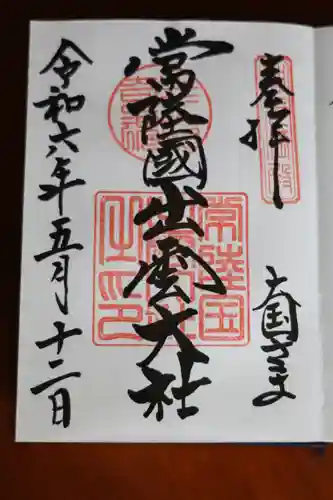 奉拝
大国さま
常陸國出雲大社
常陸国
出雲大社
之印
令和六年五月十二日